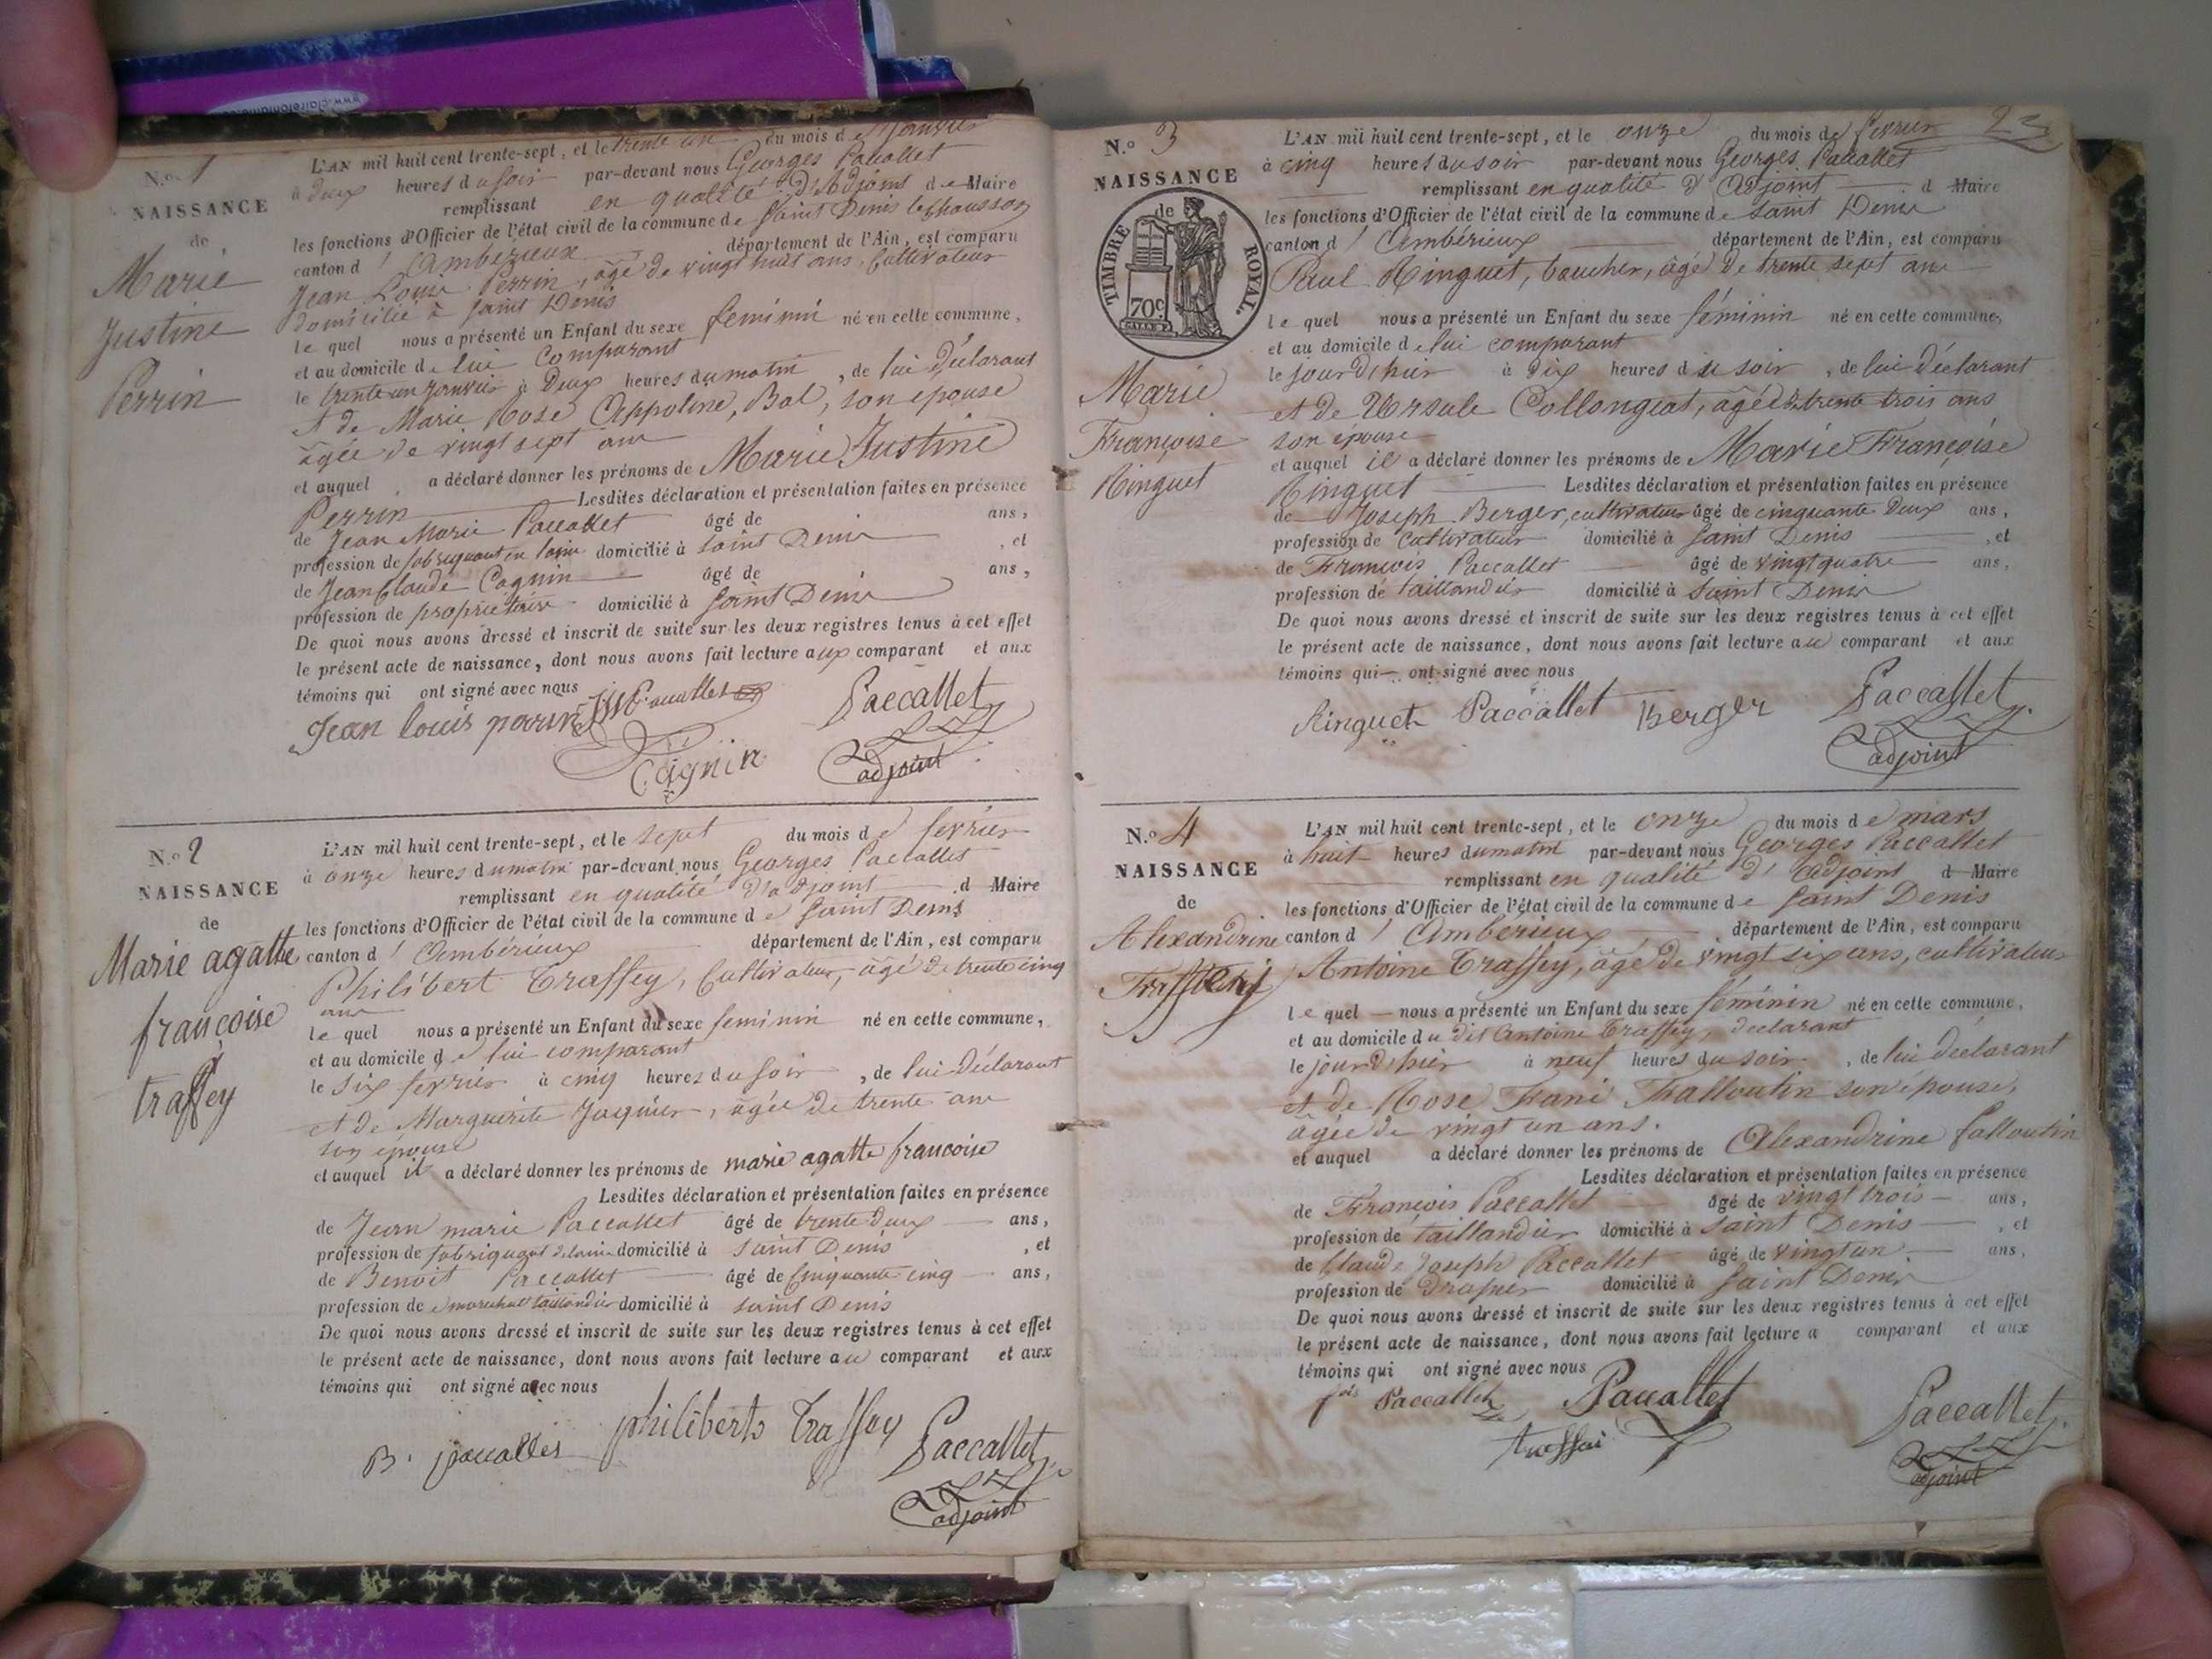 www.clairefontaine
N.º 1
NAISSANCE
de
Marie
Justine
Perrin
L'AN mil huit cent trente-sept, et le trente un du mois de Janvier
à deux heures du soir par-devant nous Georges Paccallet
remplissant en qualité d'Adjoint de Maire
les fonctions d'Officier de l'état civil de la commune de Saint Denis le Chausson
canton d' Ambérieux département de l'Ain, est comparu
Jean Louis Perrin, âgé de vingt huit ans, Cultivateur
domicilié à Saint Denis
le quel nous a présenté un Enfant du sexe feminin né en cette commune,
et au domicile de lui comparant
le trente un janvier à Deux heures du matin, de lui Déclarant
et de Marie Rose Appoline, Bal, son épouse
âgée de vingt sept ans
et auquel a déclaré donner les prénoms de Marie Justine
Perrin Lesdites déclaration et présentation faites en présence
de Jean Marie Paccallet âgé de ans,
profession de fabriquant en laine domicilié à Saint Denis, et
de Jean Claude Cagnin âgé de ans,
profession de propriétaire domicilié à Saint Denis
De quoi nous avons dressé et inscrit de suite sur les deux registres tenus à cet effet
le présent acte de naissance, dont nous avons fait lecture aux comparant et aux
témoins qui ont signé avec nous
Jean louis perrin JM Paccallet Paccallet
Cagnin adjoint
N.º 2
NAISSANCE
de
Marie agatte
francoise
traffey
L'AN mil huit cent trente-sept, et le sept du mois de fevrier
à onze heures du matin par-devant nous Georges Paccallet
remplissant en qualité d'adjoint d Maire
les fonctions d'Officier de l'état civil de la commune de Saint Denis
canton d' Ambérieux département de l'Ain, est comparu
Philibert Traffey, Cultivateur, âgé de trente cinq
ans
le quel nous a présenté un Enfant du sexe feminin né en cette commune,
et au domicile de lui comparant
le six fevrier à cinq heures du soir, de lui Déclarant
et de Marguerite Jaquier, âgée de trente ans
son épouse
et auquel il a déclaré donner les prénoms de marie agatte francoise
Lesdites déclaration et présentation faites en présence
de Jean marie Paccallet âgé de trente deux ans,
profession de fabriquant de laine domicilié à Saint Denis, et
de Benoit Paccallet âgé de Cinquante cinq ans,
profession de marechal taillandier domicilié à Saint Denis
De quoi nous avons dressé et inscrit de suite sur les deux registres tenus à cet effet
le présent acte de naissance, dont nous avons fait lecture au comparant et aux
témoins qui ont signé avec nous
B. pacalles philiberts Traffey Paccallet
adjoint
23
N.º 3
NAISSANCE
de
TIMBRE ROYAL
70c
Marie
Françoise
Ringuet
L'AN mil huit cent trente-sept, et le onze du mois de fevrier
à cinq heures du soir par-devant nous Georges Paccallet
remplissant en qualité d'Adjoint d Maire
les fonctions d'Officier de l'état civil de la commune de Saint Denis
canton d' Ambérieux département de l'Ain, est comparu
Paul Ringuet, boucher, âgé de trente sept ans
le quel nous a présenté un Enfant du sexe féminin né en cette commune,
et au domicile de lui comparant
le jour d'hier à dix heures du soir, de lui Déclarant
et de Ursule Collongeat, âgée de trente trois ans
son épouse
et auquel il a déclaré donner les prénoms de Marie Françoise
Ringuet Lesdites déclaration et présentation faites en présence
de Joseph Berger, cultivateur âgé de cinquante deux ans,
profession de Cultivateur domicilié à Saint Denis, et
de François Paccallet âgé de vingt quatre ans,
profession de taillandier domicilié à Saint Denis
De quoi nous avons dressé et inscrit de suite sur les deux registres tenus à cet effet
le présent acte de naissance, dont nous avons fait lecture au comparant et aux
témoins qui ont signé avec nous
Ringuet Paccallet Berger Paccallet
adjoint
N.º 4
NAISSANCE
de
Alexandrine
L'AN mil huit cent trente-sept, et le onze du mois de mars
à huit heures du matin par-devant nous Georges Paccallet
remplissant en qualité d'adjoint d Maire
les fonctions d'Officier de l'état civil de la commune de Saint Denis
canton d' Ambérieux département de l'Ain, est comparu
Antoine Traffey, âgé de vingt six ans, cultivateur
le quel nous a présenté un Enfant du sexe féminin né en cette commune,
et au domicile du dit Antoine Traffey, declarant
le jour d'hier à neuf heures du soir, de lui déclarant
et de Rose son épouse,
âgée de vingt un ans.
et auquel a déclaré donner les prénoms de Alexandrine
Lesdites déclaration et présentation faites en présence
de François Paccallet âgé de vingt trois ans,
profession de taillandier domicilié à Saint Denis, et
de Claude Joseph Paccallet âgé de vingt un ans,
profession de Drapier domicilié à Saint Denis
De quoi nous avons dressé et inscrit de suite sur les deux registres tenus à cet effet
le présent acte de naissance, dont nous avons fait lecture a comparant et aux
témoins qui ont signé avec nous
fois Paccallet Pacallet Paccallet
traffai adjoint